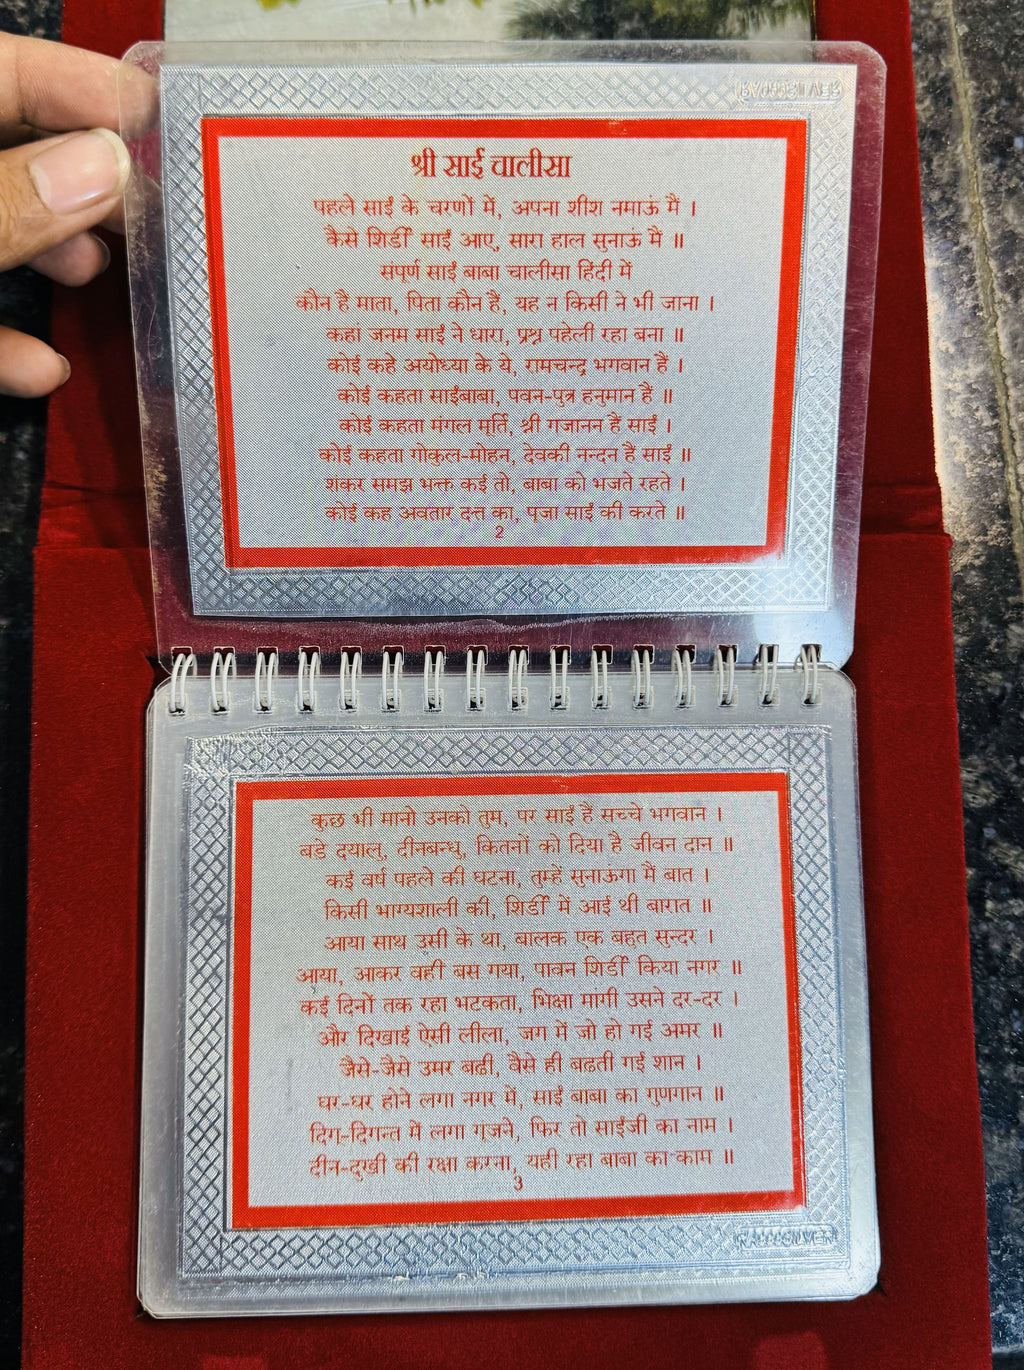 श्री साईं चालीसा
पहले साईं के चरणों में, अपना शीश नमाऊं मैं ।
कैसे शिर्डी साईं आए, सारा हाल सुनाऊं मैं ॥
संपूर्ण साईं बाबा चालीसा हिंदी में
कौन है माता, पिता कौन है, यह न किसी ने भी जाना ।
कहां जनम साईं ने धारा, प्रश्न पहेली रहा बना ॥
कोई कहे अयोध्या के ये, रामचन्द्र भगवान हैं ।
कोई कहता साईंबाबा, पवन-पुत्र हनुमान हैं ॥
कोई कहता मंगल मूर्ति, श्री गजानन है साईं ।
कोई कहता गोकुल-मोहन, देवकी नन्दन है साईं ॥
शंकर समझ भक्त कई तो, बाबा को भजते रहते ।
कोई कह अवतार दत्त का, पूजा साईं की करते ॥
2
कुछ भी मानो उनको तुम, पर साईं हैं सच्चे भगवान ।
बड़े दयालु, दीनबन्धु, कितनों को दिया है जीवन दान ॥
कई वर्ष पहले की घटना, तुम्हें सुनाऊंगा मैं बात ।
किसी भाग्यशाली की, शिर्डी में आई थी बारात ॥
आया साथ उसी के था, बालक एक बहुत सुन्दर ।
आया, आकर वहीं बस गया, पावन शिर्डी किया नगर ॥
कई दिनों तक रहा भटकता, भिक्षा मांगी उसने दर-दर ।
और दिखाई ऐसी लीला, जग में जो हो गई अमर ॥
जैसे-जैसे उमर बढ़ी, वैसे ही बढ़ती गई शान ।
घर-घर होने लगा नगर में, साईं बाबा का गुणगान ॥
दिग्-दिगन्त में लगा गूंजने, फिर तो साईंजी का नाम ।
दीन-दुखी की रक्षा करना, यही रहा बाबा का काम ॥
3